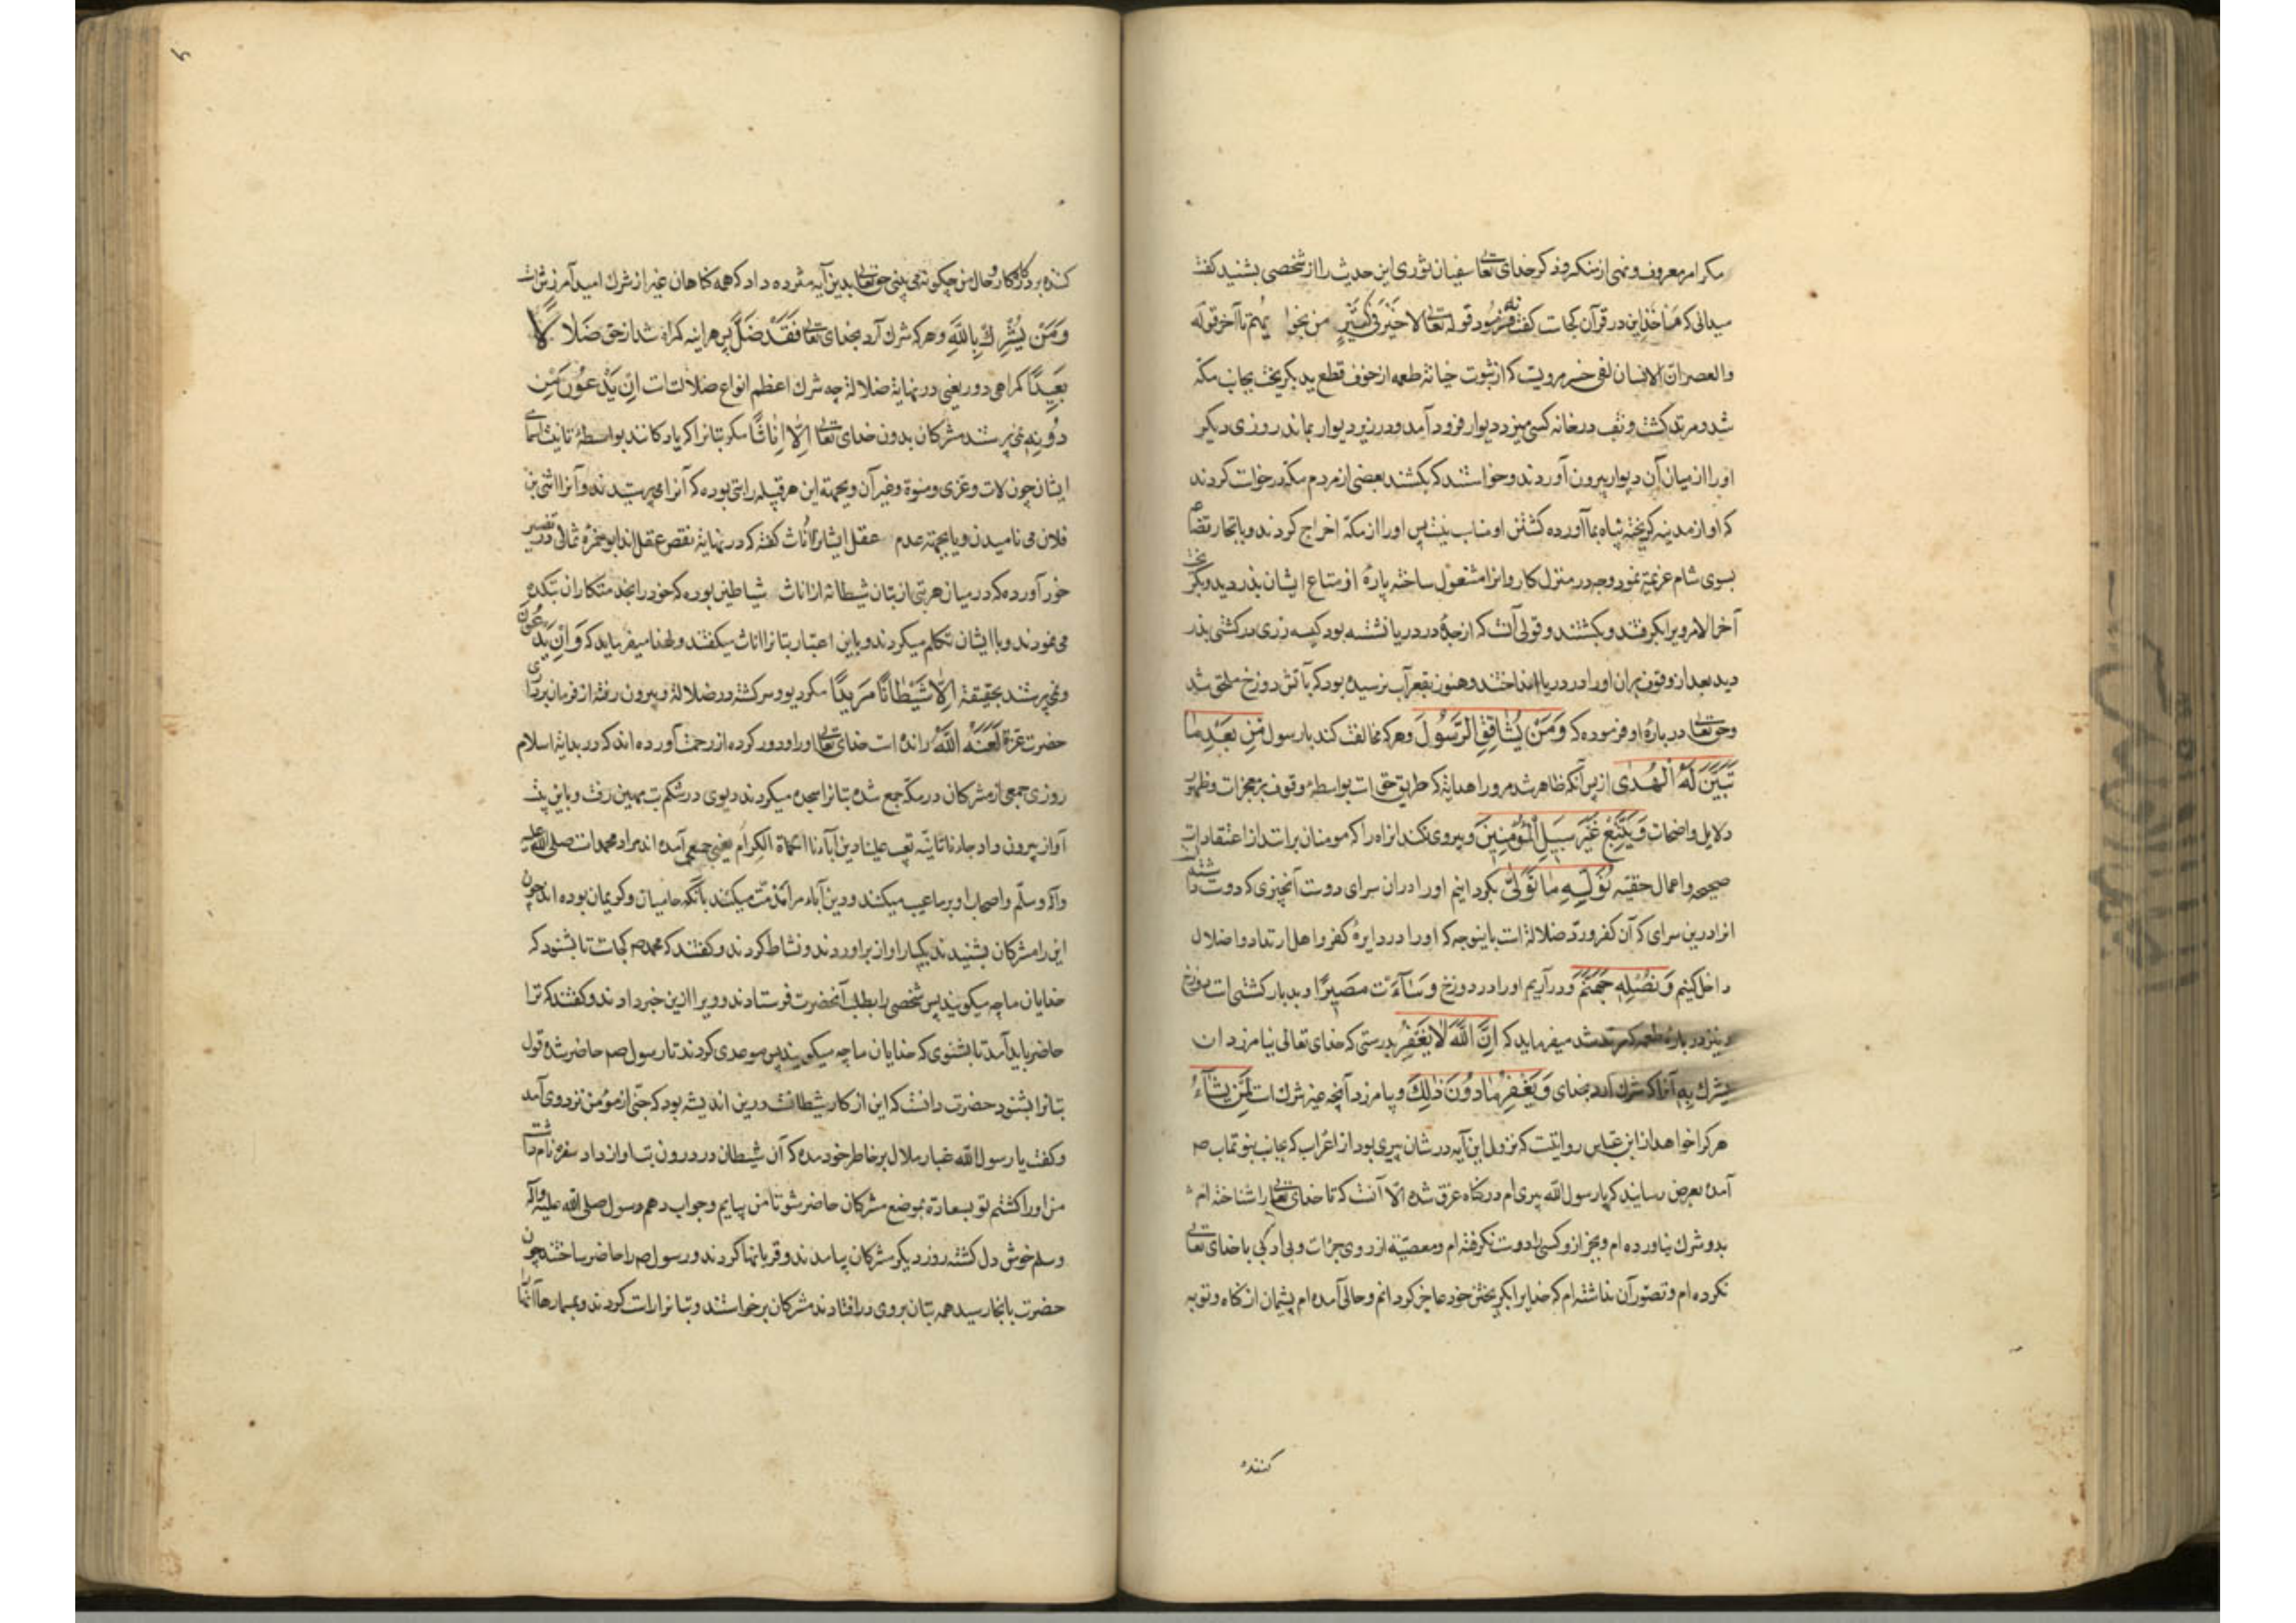 مکر امر بمعروف و نهی از منکر و ذکر خدای تعالی سفیان ثوری این حدیث را از شخصی بشنید کفت
میدانی که مأخذ این در قرآن کجاست کفت فرموده قوله تعالی لا خیر فی کثیر من نجواهم تا آخر قوله
والعصر ان الانسان لفی خسر مرویست که از ثبوت خیانة طعمه از خوف قطع ید بکریخت بجانب مکه
شد و مرتد کشت و نقب در خانه کسی میزد دیوار فرود آمد و در زیر دیوار بماند روزی دیکر
او را از میان آن دیوار بیرون آوردند و خواستند که بکشند بعضی از مردم مکه درخواست کردند
که او از مدینه کریخته پناه بما آورده کشتن او مناسب نیست پس او را از مکه اخراج کردند و با تجار قضا
بسوی شام عزیمة نمود و چه در منزل کاروانرا مشغول ساخته پارهٔ از متاع ایشان بدزدید و بکریخت
آخر الامر ویرا بکرفتند و بکشتند و قولی آنست که از جده در دریا نشسته بود کیسه زری در کشتی بدز
دید بعد از وقوف بران او را در دریا انداختند و هنوز بقعر آب نرسیده بود که بآتش دوزخ ملحق شد
و حق تعالی در بارهٔ او فرموده که وَمَنْ یُشَاقِقِ الرَّسُولَ و هر که مخالفت کند با رسول مِنْ بَعْدِ مَا
تَبَیَّنَ لَهُ الْهُدَی از پس آنکه ظاهر شد مرورا هدایة که طریق حق است بواسطهٔ وقوف بر معجزات و ظهور
دلایل واضحات وَیَتَّبِعْ غَیْرَ سَبِیلِ الْمُؤْمِنِینَ و پیروی کند انراه را که مومنان برانند از اعتقادات
صحیحه و اعمال حقیه نُوَلِّیهِ مَا تَوَلَّی بکردانیم او را دران سرای دوست آنچیزی که دوست داشته
انرا درین سرای که آن کفر و ردّ ضلالة است باینوجه که او را در دایرهٔ کفر و اهل ارتداد و اضلال
داخل کنیم وَنُصْلِهِ جَهَنَّمَ و در آریم او را در دوزخ وَسَآءَتْ مَصِیرًا و بد بازکشتی است دوزخ
و نیز در بارهٔ طعمه که مرتد شد میفرماید که اِنَّ اللّٰهَ لَا یَغْفِرُ بدرستی که خدای تعالی نیامرزد ان
یشرک به آنرا که شرک آرد بخدای وَیَغْفِرُ مَا دُونَ ذٰلِکَ و بیامرزد آنچه غیر شرک است لِمَنْ یَشَآءُ
هر کرا خواهد از ابن عباس روایتست که نزول این آیه در شان پیری بود از اعراب که بجانب نبوتمآب صم
آمده بعرض رسانید که یا رسول الله پیری ام در کناه غرق شده الا آنست که تا خدای تعالی را شناخته ام
بدو شرک نیاورده ام و بجز از او کسی را دوست نکرفته ام و معصیة از روی جرات و بی ادبی با خدای تعالی
نکرده ام و تصور آن نداشته ام که خدایرا بکریختن خود عاجز کردانم و حالی آمده ام پشیمان از کناه و توبه
کننده
کننده بردرکار و حال من چکونه می بینی حق تعالی بدین آیه مژده داد که همه کناهان غیر از شرک امید آمرزش است
وَمَنْ یُشْرِكْ بِاللّٰهِ و هر که شرک آرد بخدای تعالی فَقَدْ ضَلَّ پس هر اینه کمراه شد از حق ضَلَالًا
بَعِیدًا کمراهی دور یعنی در نهایة ضلالة چه شرک اعظم انواع ضلالتست اِنْ یَدْعُونَ مِنْ
دُونِهِ نمی پرستند مشرکان بدون خدای تعالی اِلَّا اِنَاثًا مکر بتانرا که یاد کنند بواسطهٔ تانیث اسمای
ایشان چون لات و عزی و منوة و غیر آن و بجهة این هر قبیله را بتی بوده که آنرا می پرستیدند و آنرا انثی بن
فلان می نامیدند و یا بجهة عدم عقل ایشانرا اناث کفته که در نهایة نقص عقل اند ابو حمزه ثمالی در تفسیر
خود آورده که در میان هر بتی از بتان شیطانه از اناث شیاطین بوده که خود را بخدمتکاران بتکده
می نمودند و با ایشان تکلم میکردند و باین اعتبار بتانرا اناث میکفتند و لهذا میفرماید که وَاِنْ یَدْعُونَ
و نمی پرستند بحقیقة اِلَّا شَیْطَانًا مَرِیدًا مکر دیو و سرکشته در ضلالة و بیرون رفته از فرمان برداری
حضرت عزة لَعَنَهُ اللّٰهُ رانده است خدای تعالی او را و دور کرده از رحمت آورده اند که در بدایة اسلام
روزی جمعی از مشرکان در مکه جمع شده بتانرا سجده میکردند دیوی در شکم بت مهین رفت و باین بیت
آواز بیرون داد جاءنا ثانیه تعیب علینا دین آباءنا الکرام یعنی جمعی آمده اند مراد محمد است صلی الله علیه
وآله وسلم و اصحاب او بر ما عیب میکنند و دین آباء مرا مذمت میکنند با آنکه حامیان و کریمان بوده اند چون
این را مشرکان بشنیدند بیکبار آواز براوردند و نشاط کردند و کفتند که محمد صم کجاست تا بشنود که
خدایان ما چه میکویند پس شخصی را بطلب آنحضرت فرستادند و ویرا ازین خبر دادند و کفتند که ترا
حاضر باید آمد تا بشنوی که خدایان ما چه میکویند پس موعدی کردند تا رسول صم حاضر شده قول
بتانرا بشنود حضرت دانست که این از کار شیطانست درین اندیشه بود که جنی از مؤمن نزد وی آمد
و کفت یا رسول الله غبار ملال بر خاطر خود مده که آن شیطان در درون بت اواز داد سفره نام داشت
من او را کشتم تو بسعادة بموضع مشرکان حاضر شو تا من بیایم و جواب دهم رسول صلی الله علیه وآله
وسلم خوش دل کشته روز دیکر مشرکان بیامدند و قربانیها کردند و رسول صم را حاضر ساختند چون
حضرت بانجا رسید همه بتان بروی در افتادند مشرکان برخواستند و بتانرا راست کردند و